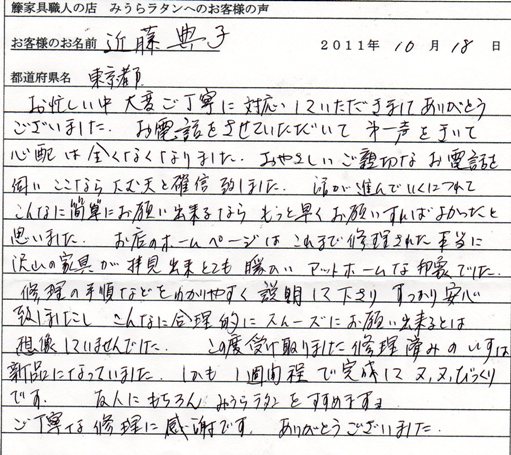 籐家具職人の店 みうらラタンへのお客様の声
お客様のお名前 近藤典子 2011年10月18日
都道府県名 東京都
お忙しい中大変ご丁寧に対応していただきましてありがとう
ございました。お電話をさせていただいて第一声をきいて
心配は全くなくなりました。おやさしいご親切なお電話を
伺いここなら大丈夫と確信致しました。話が進んでいくにつれて
こんなに簡単にお願い出来るならもっと早くお願いすればよかったと
思いました。お店のホームページはこれまで修理された本当に
沢山の家具が拝見出来とても暖かいアットホームな印象でした。
修理の手順などをわかりやすく説明して下さりすっかり安心
致しましたしこんなに合理的にスムーズにお願い出来るとは
想像していませんでした。この度受け取りました修理済みのいすは
新品になっていました。しかも1週間程で完成して又、又、びっくり
です。友人にもちろんみうらラタンをすすめますョ
ご丁寧な修理に感謝です。ありがとうございました。